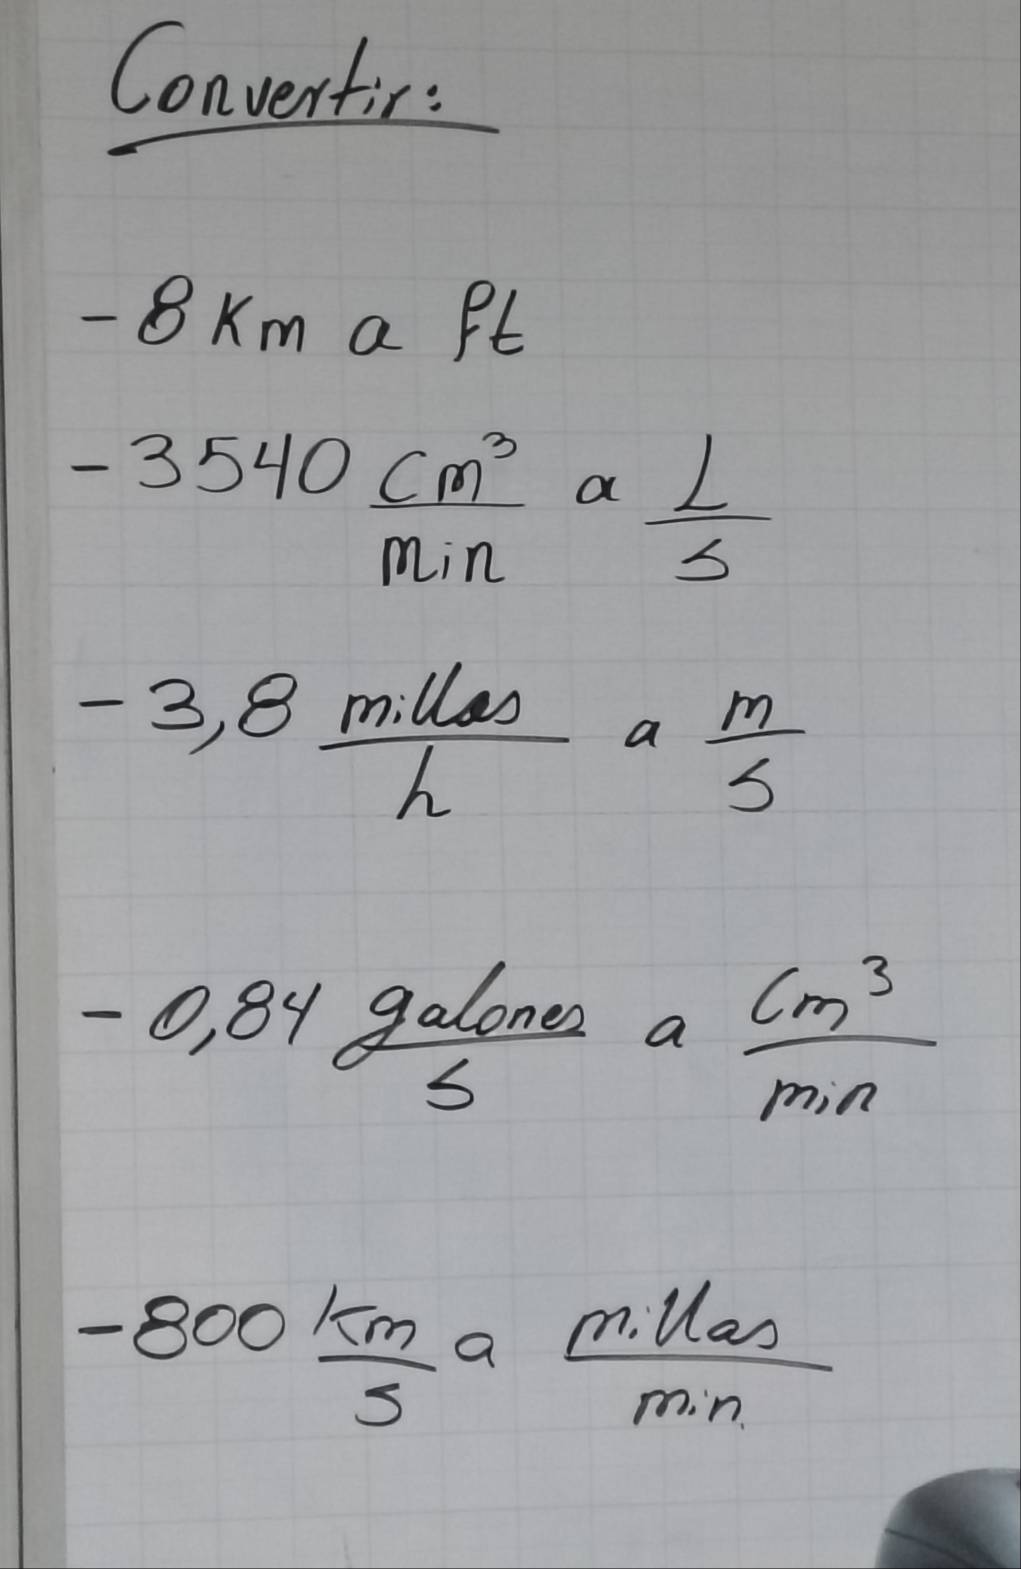 Convertir:
- 8 Km a ft
- 3540 cm³/min a L/s
- 3,8 millas/h a m/s
- 0,84 galones/s a cm³/min
- 800 km/s a millas/min